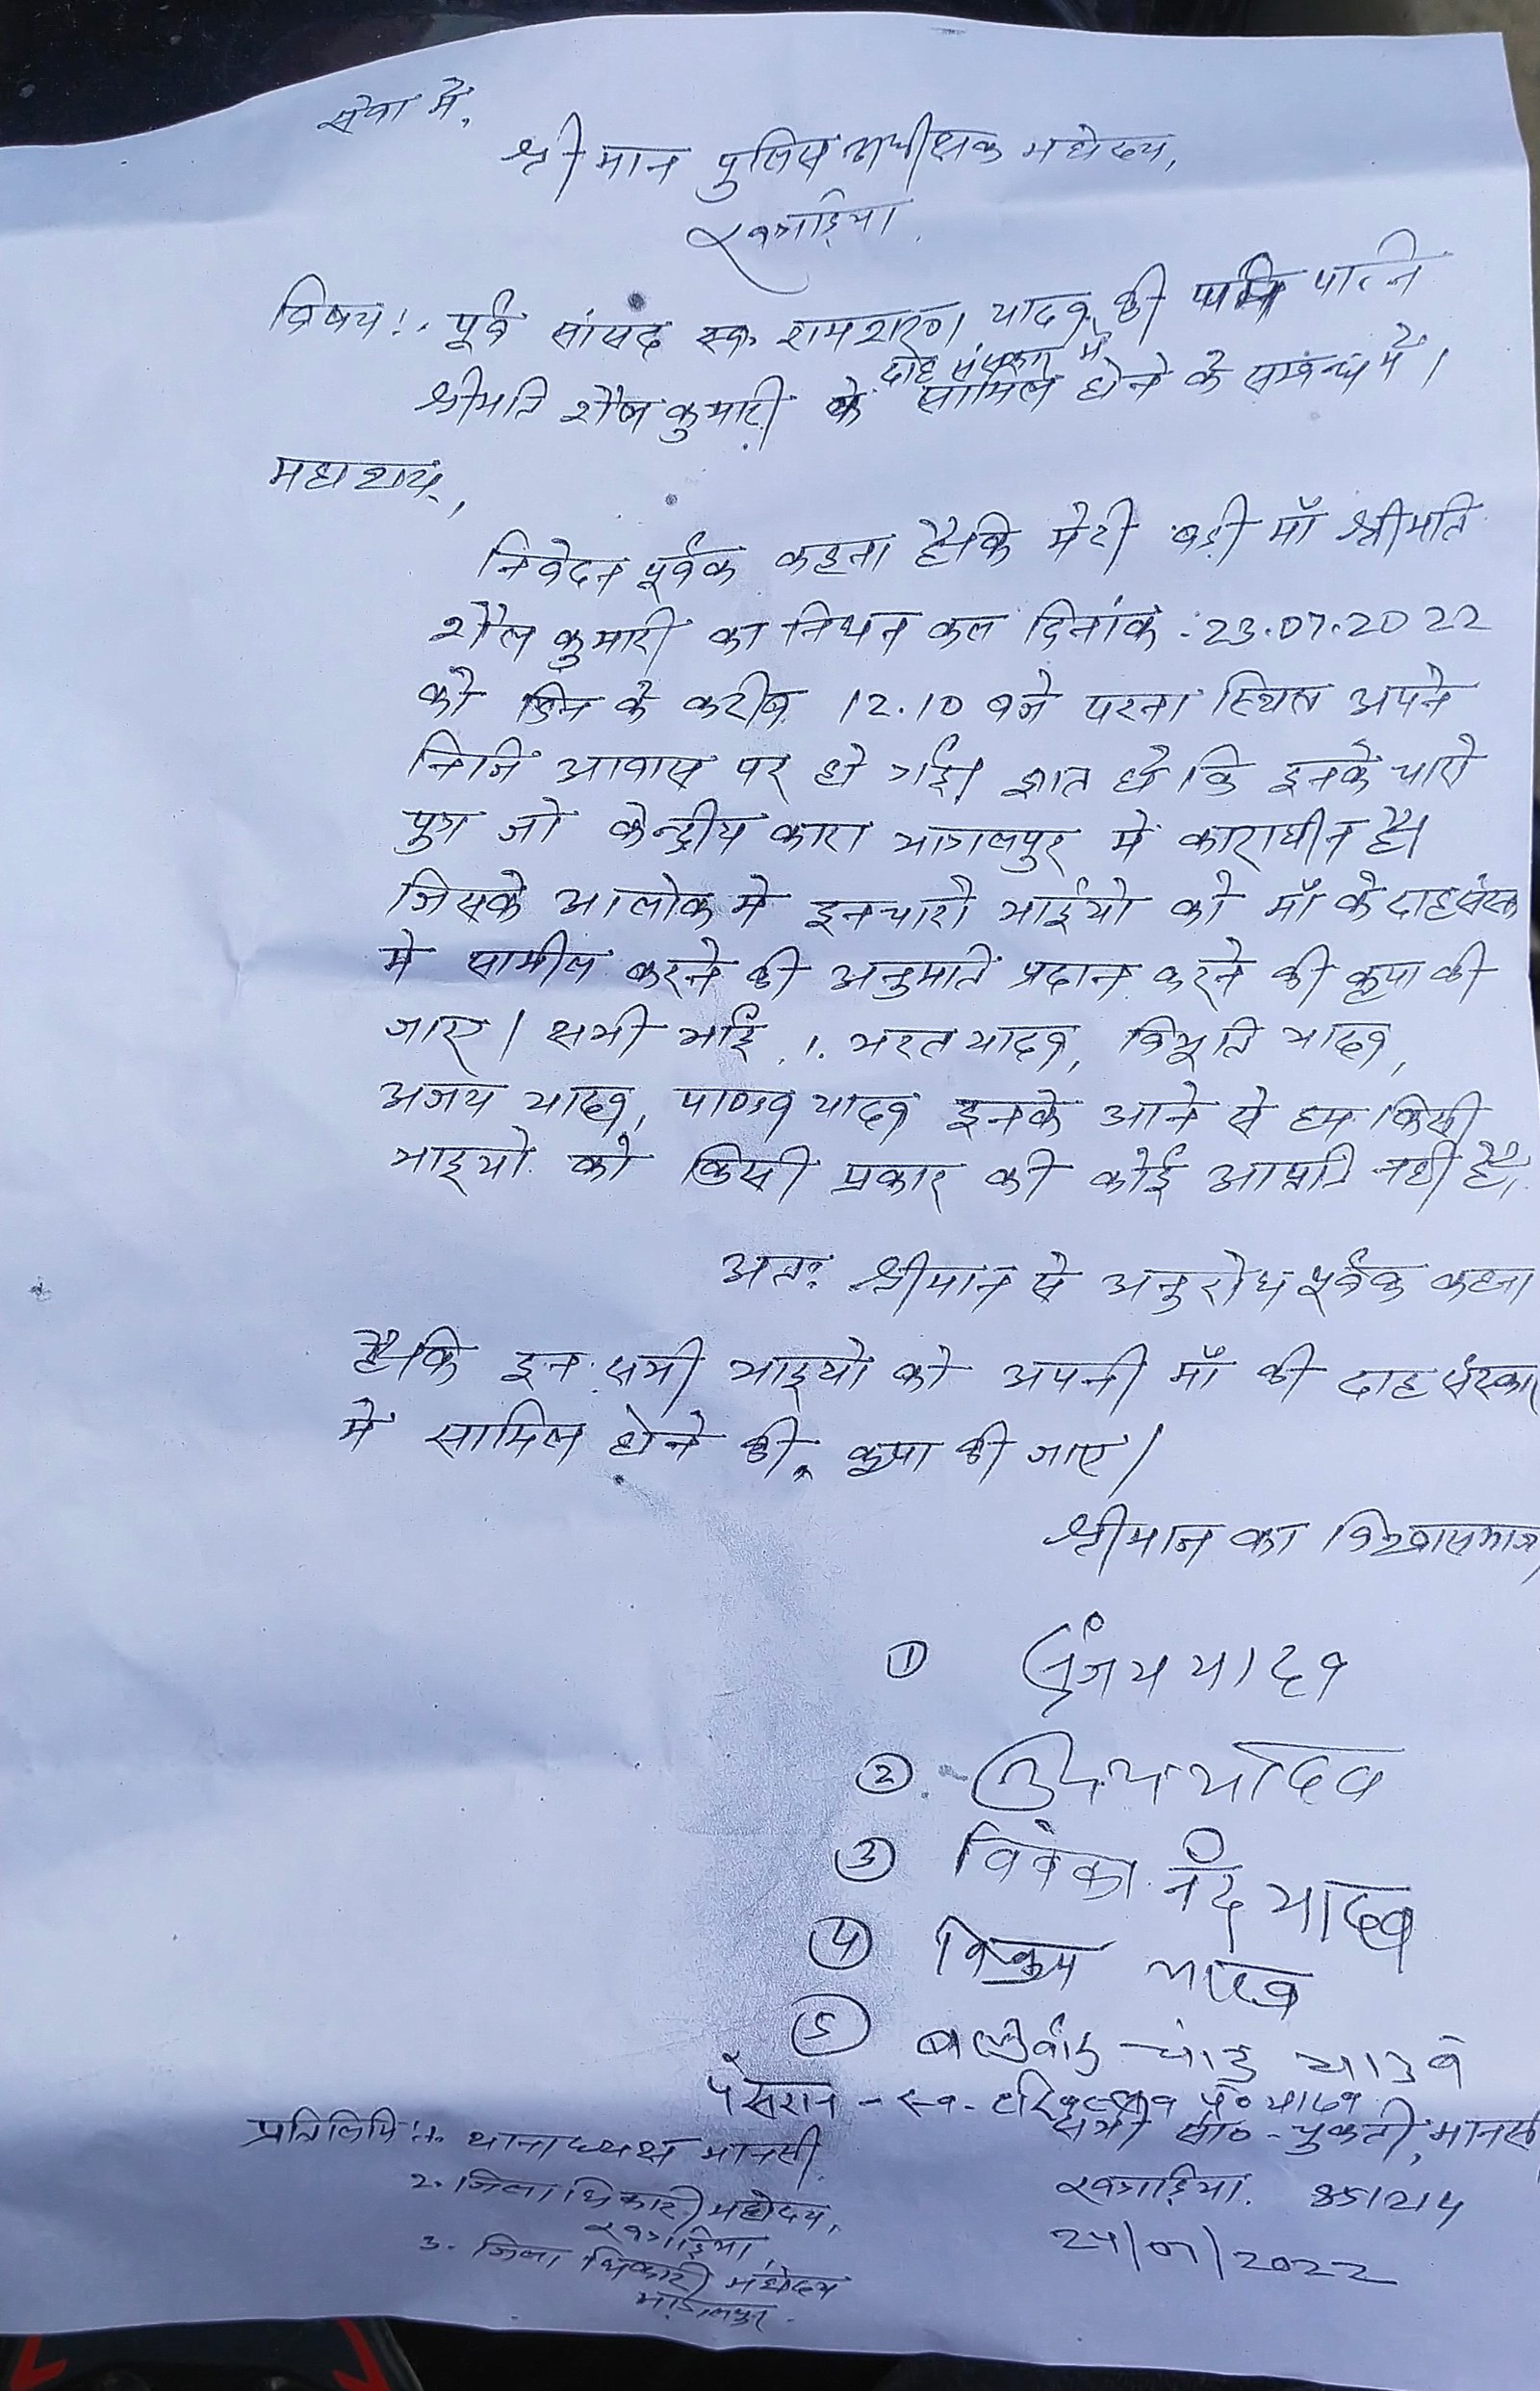 सेवा में,
श्रीमान पुलिस अधीक्षक महोदय,
खगड़िया
विषय:- पूर्व सांसद स्व. रामशरण यादव की पत्नि
दाह संस्कार में
श्रीमति शैल कुमारी के सामिल होने के सम्बन्ध में।
महाशय,
निवेदन पूर्वक कहना है कि मेरी बड़ी माँ श्रीमति
शैल कुमारी का निधन कल दिनांक :23.07.2022
को दिन के करीब 12.10 बजे पटना स्थित अपने
निजि आवास पर हो गई। ज्ञात हो कि इनके चारो
पुत्र जो केन्द्रीय कारा भागलपुर में काराधीन है।
जिसके आलोक मे इन चारो भाईयो को माँ के दाह संस्का
मे सामील करने की अनुमति प्रदान करने की कृपा की
जाए। सभी भाई 1. भरत यादव, विभूति यादव,
अजय यादव, पाण्डव यादव इनके आने से हम किसी
भाइयो को किसी प्रकार की कोई आपत्ति नही है।
अतः श्रीमान से अनुरोध पूर्वक कहना
है कि इन सभी भाइयो को अपनी माँ की दाह संस्कार
मे सामिल होने की कृपा की जाए।
श्रीमान का विश्वासभाजन
① संजय यादव
② उदय यादव
③ विवेका नंद यादव
④ विक्रम यादव
⑤ यादव
पेसरान - स्व. यादव
सभी सा० - चुकती, मानसी
प्रतिलिपि:- थानाध्यक्ष मानसी
खगड़िया. 851214
2. जिलाधिकारी महोदय,
खगड़िया
24/07/2022
3. जिला धिकारी महोदय
भागलपुर.